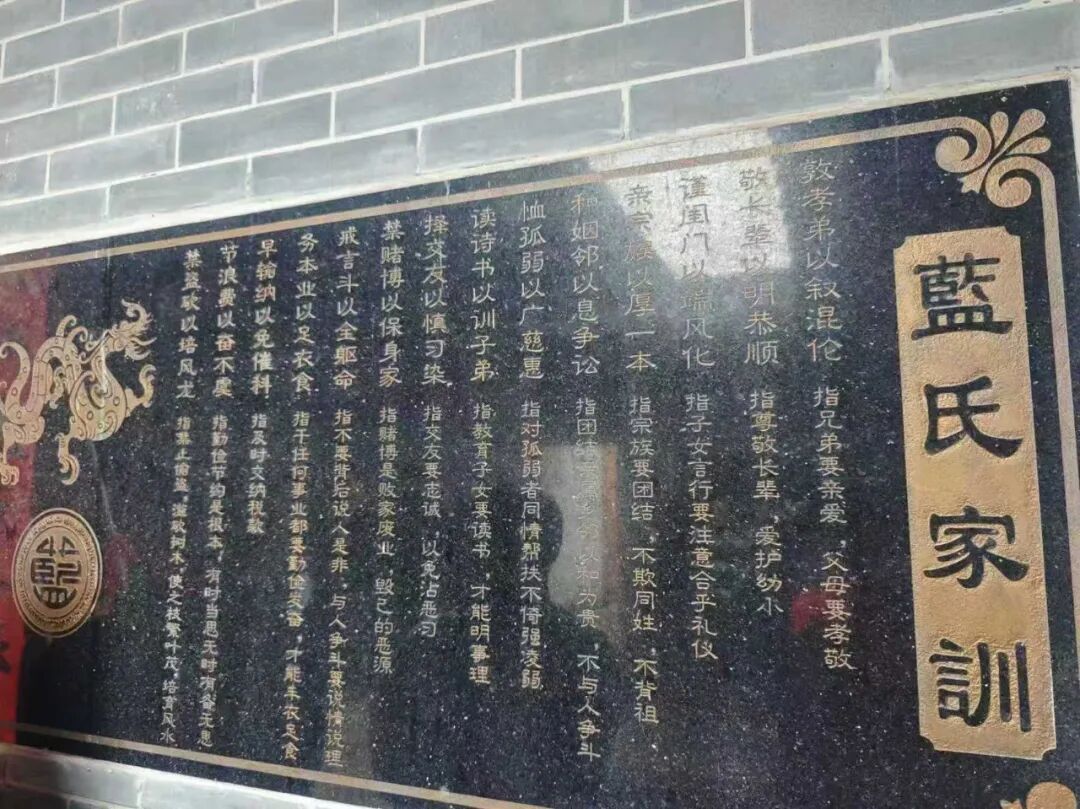 藍氏家訓
敦孝弟以叙混伦 指兄弟要亲爱，父母要孝敬
敬长辈以明恭顺 指尊敬长辈，爱护幼小
谨闺门以端风化 指子女言行要注意合乎礼仪
亲宗族以厚一本 指宗族要团结，不欺同姓，不背祖
和姻邻以息争讼 指团结 以和为贵，不与人争斗
恤孤弱以广慈惠 指对孤弱者同情帮扶不倚强凌弱
读诗书以训子弟 指教育子女要读书，才能明事理
择交友以慎习染 指交友要忠诚，以免占恶习
禁赌博以保身家 指赌博是败家废业，毁己的恶源
戒言斗以全躯命 指不要背后说人是非，与人争斗要说情说理
务本业以足衣食 指干任何事业都要勤俭发奋，才能丰衣足食
早输纳以免催科 指及时交纳税款
节浪费以奋不虞 指勤俭节约是根本，有时当思无时有备无患
禁盗砍以培风龙 指禁止偷盗，滥砍树木，使之枝繁叶茂，培育风水
藍